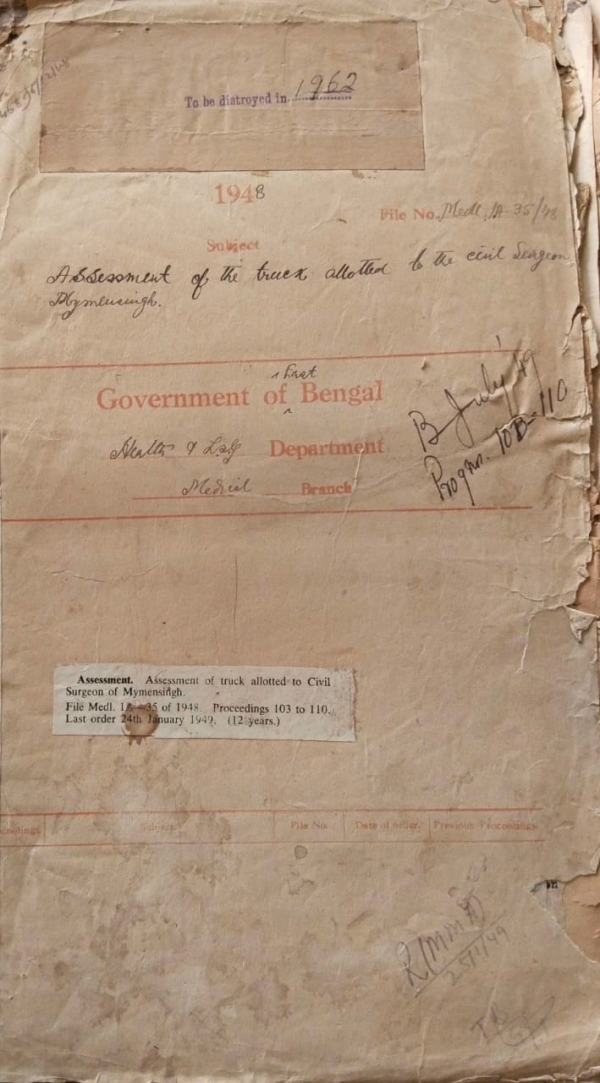 To be distroyed in 1962
1948
File No. Medl. 1A-35/48
Subject
Assessment of the truck allotted to the civil Surgeon
Mymensingh.
East
Government of Bengal
Health & L.S.G Department
Medical Branch
B July '49
Progs no. 103-110
Assessment. Assessment of truck allotted to Civil
Surgeon of Mymensingh.
File Medl. 1A-35 of 1948. Proceedings 103 to 110.
Last order 24th January 1949. (12 years.)
Subject. File No. Date of order. Previous Proceedings.
25/1/49